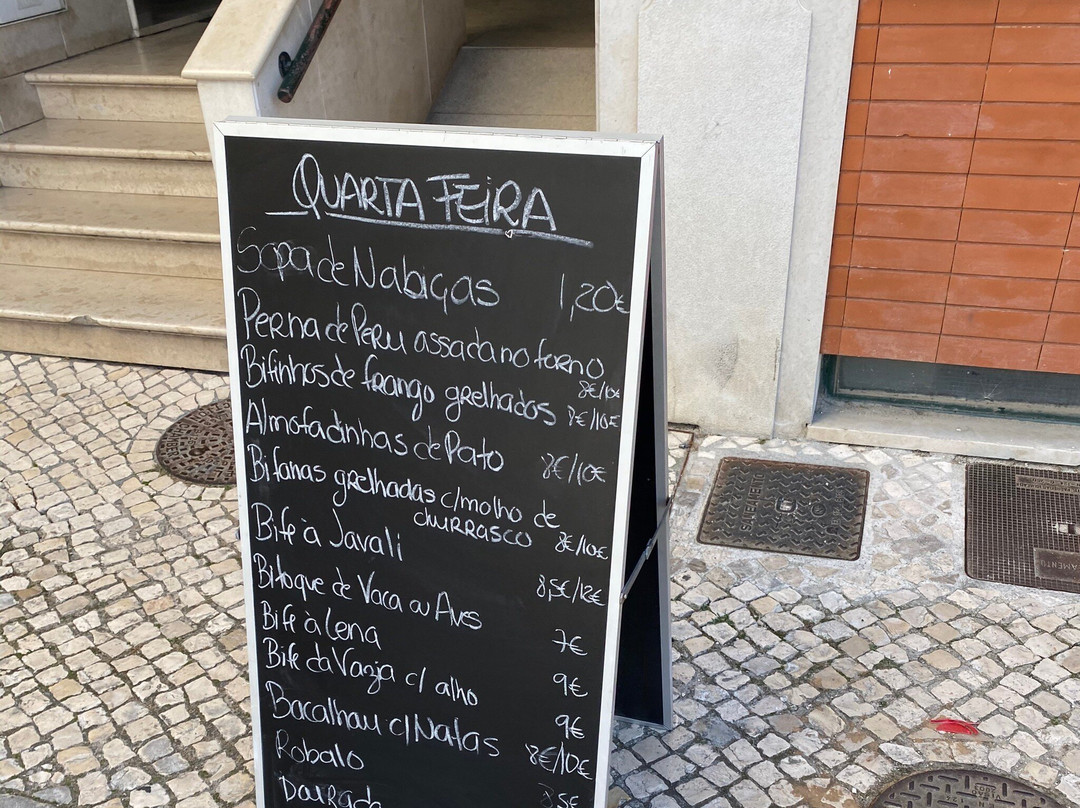 QUARTA FEIRA
Sopa de Nabiças 1,20€
Perna de Peru assada no forno
8€/10€
Bifinhos de frango grelhados 8€/10€
Almofadinhas de Pato 8€/10€
Bifanas grelhadas c/molho de
churrasco 8€/10€
Bife à Javali 8,5€/12€
Bitoque de Vaca ou Aves 7€
Bife à Lena 9€
Bife da Vazia c/ alho 9€
Bacalhau c/Natas 8€/10€
Robalo
Dourada
SANEAMENTO
2003